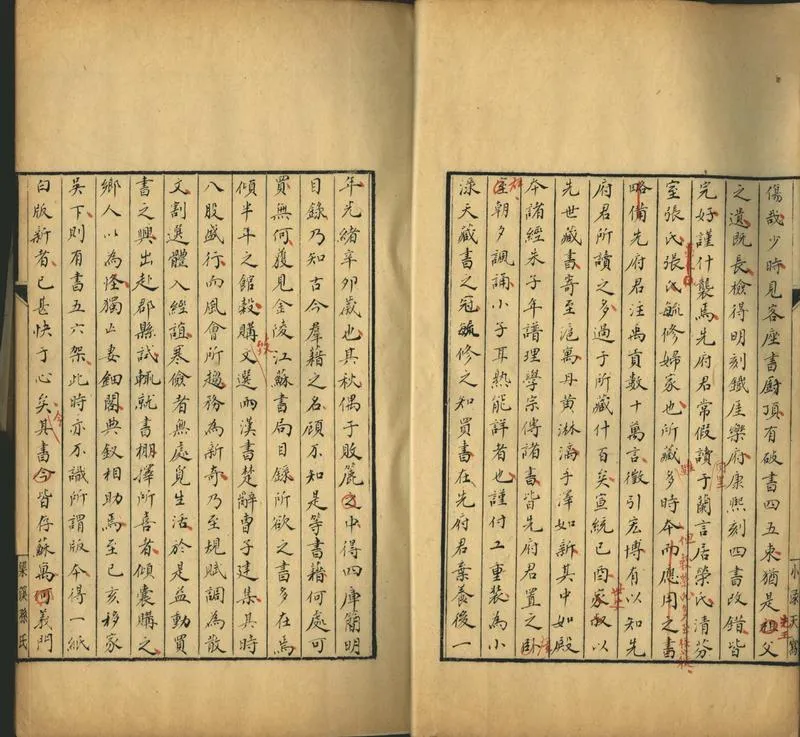 傷哉少時見客座書廚頂有破書四五束猶是祖父
之遺既長檢得明刻鐵厓樂府康熙刻四書改錯皆
完好謹什襲焉先府君常假讀于蘭言居榮氏清芬
室張氏張氏毓修婦家也所藏多時令而應用之書
略備先府君注禹貢數十萬言徵引宏博有以知先
府君所讀之多過于所藏什百矣宣統己酉家叔以
先世藏書寄至滬寓丹黃淋漓手澤如新其中如殿
本諸經朱子年譜理學宗傳諸書皆先府君置之臥
室朝夕諷誦小子耳熟能詳者也謹付工重裝為小
淥天藏書之冠毓修之知買書在先府君棄養後一
小淥天寫
年光緒辛卯歲也其秋偶于敗簏之中得四庫簡明
目錄乃知古今羣籍之名顧不知是等書籍何處可
買無何獲見金陵江蘇書局目錄所欲之書多在焉
傾半斗之館穀購文選兩漢書楚辭曹子建集其時
八股盛行而風會所趨務為新奇乃至規賦調為散
文割選體入經誼寒儉者無處覓生活於是益動買
書之興出赴郡縣試輒就書棚擇所喜者傾囊購之
鄉人以為怪獨亡妻鈿閣典釵相助焉至己亥移家
吳下則有書五六架此時亦不識所謂版本得一紙
白版新者已甚快于心矣其書今皆存蘇寓何義門
梁溪孫氏